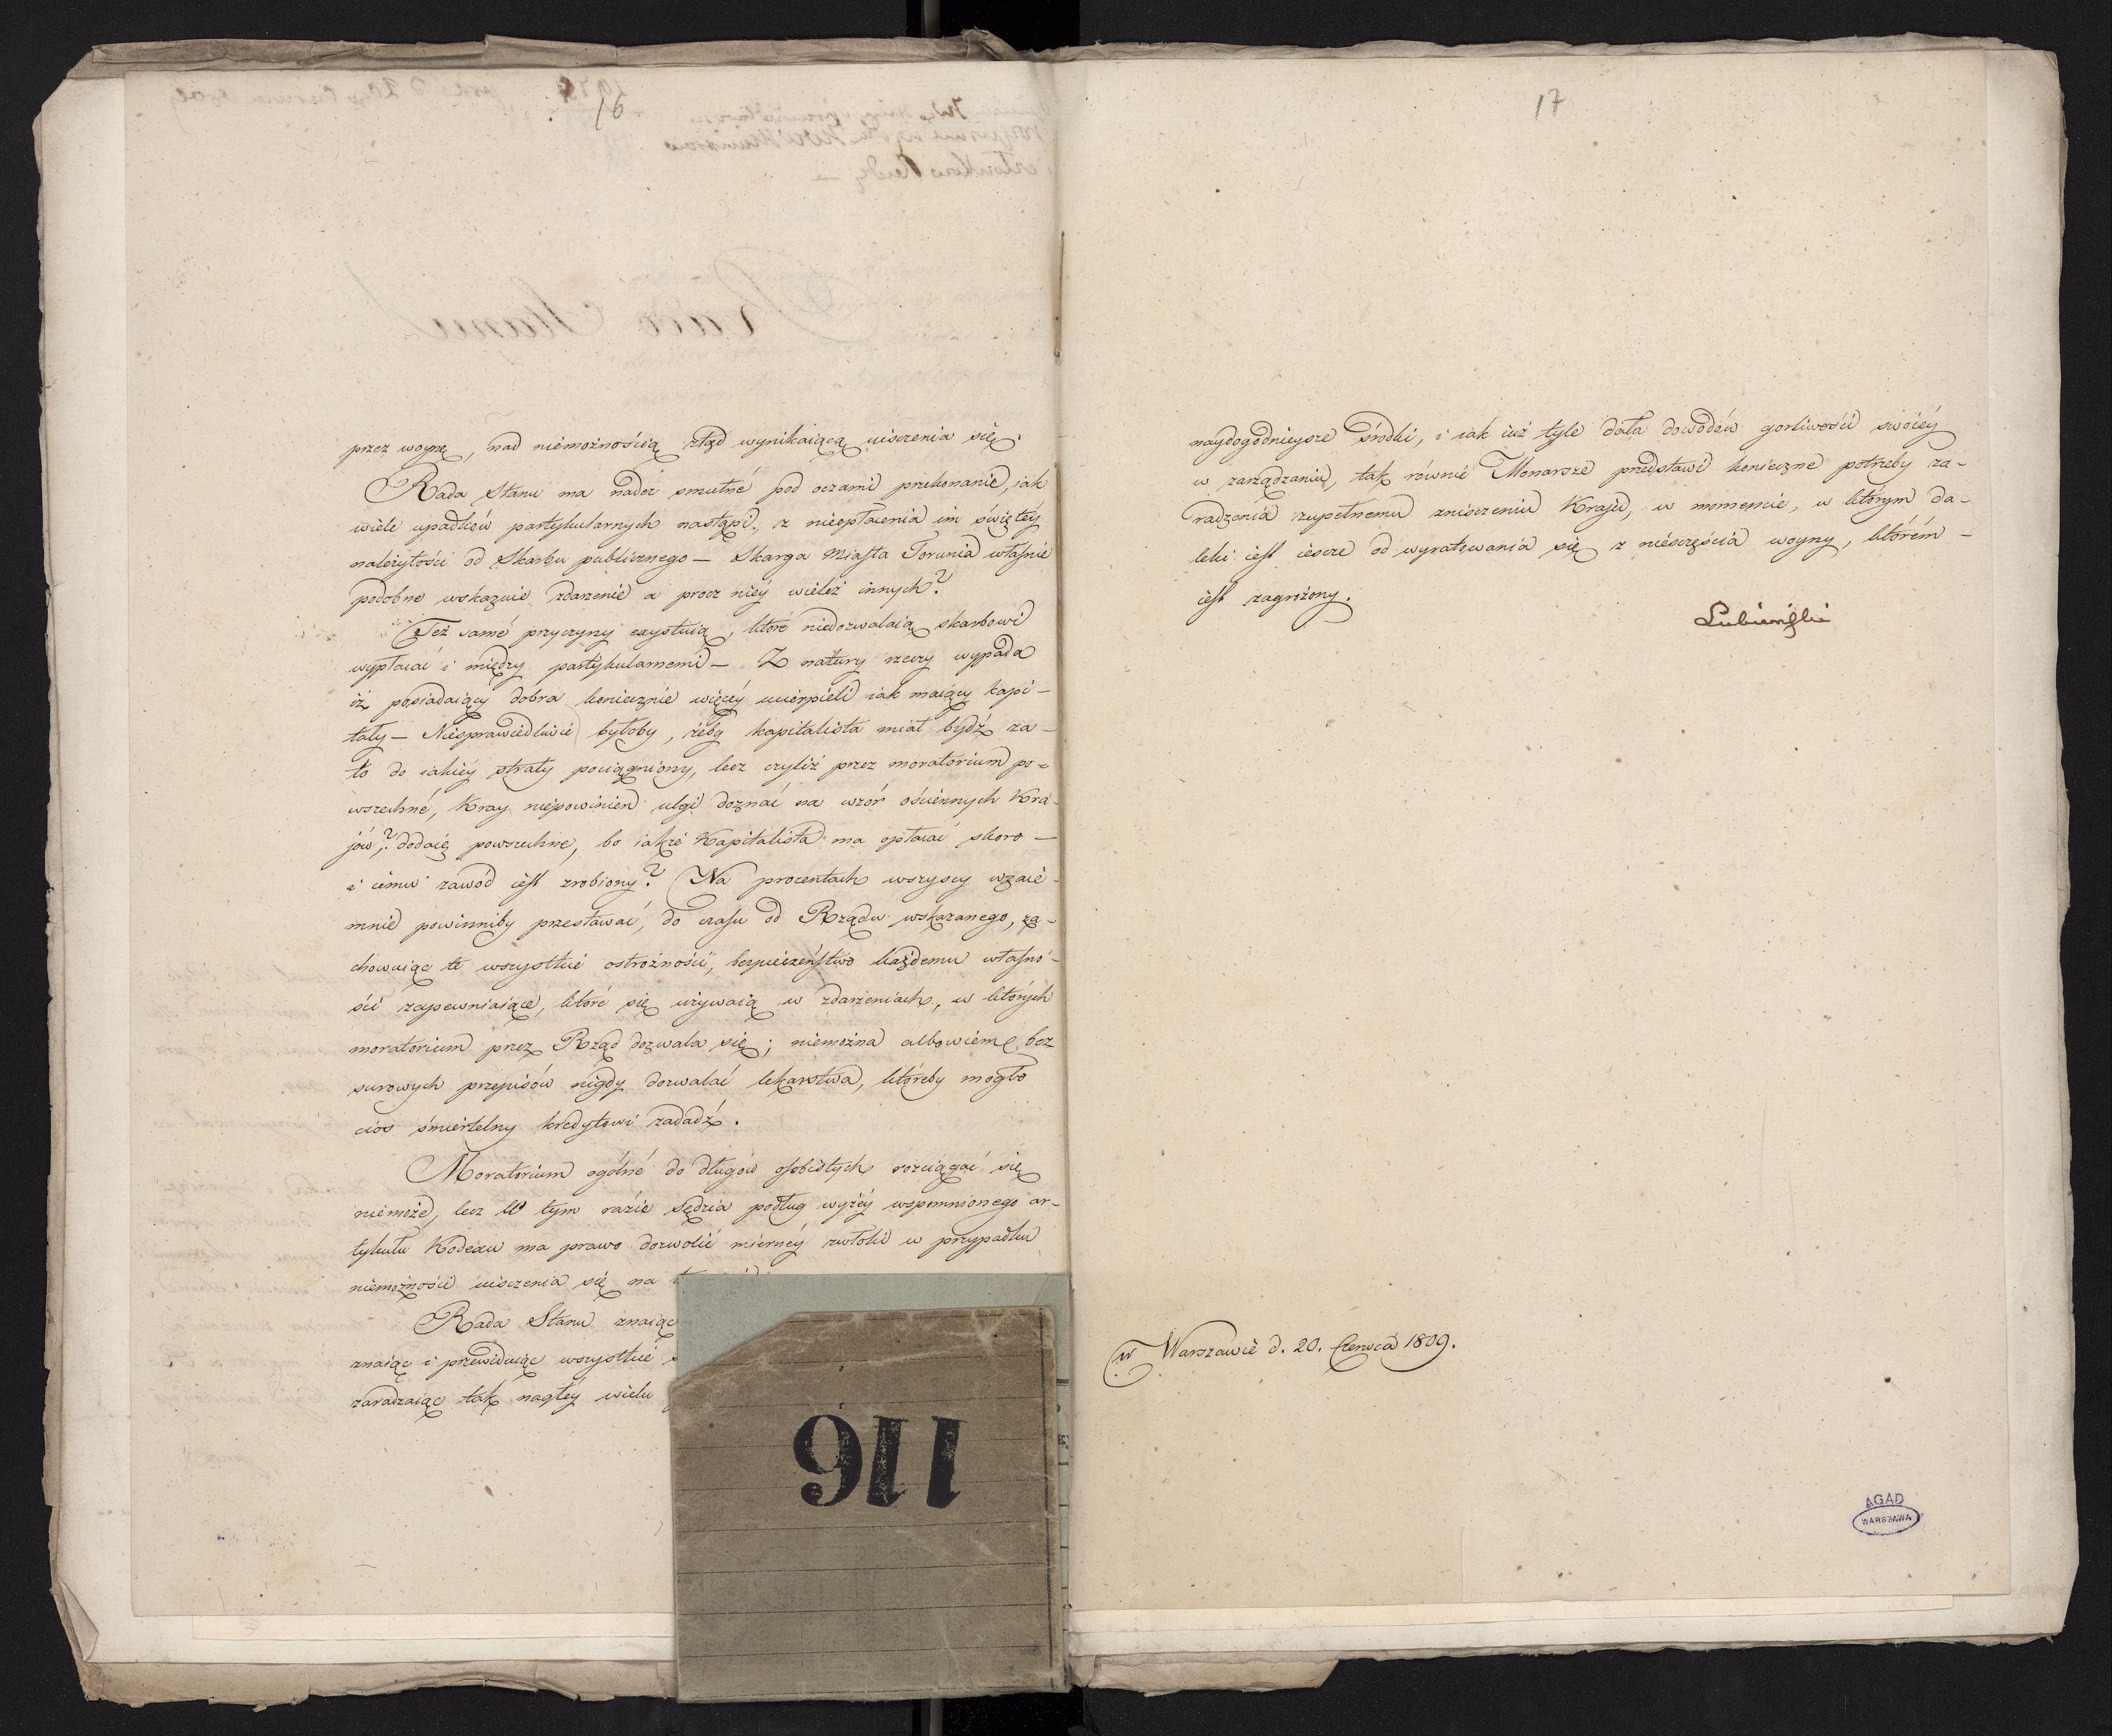 16
przez woynę, nad niémożnością ztąd wynikaiącą uiszczenia się.
Rada Stanu ma nadto smutné pod oczami przekonanie, iak
wiele upadków partykularnych nastąpi, z nieopłacenia im świętéy
należytości od Skarbu publicznego — Skarga Miasta Torunia właśnie
podobne wskazuie zdarzenie a procz niéy wieleż innych?
Też samé przyczyny exystuią, któré niedozwalaią skarbowi
wypłacać i między partykularnemi — Z natury rzeczy wypada
iż posiadaiący dobra koniecznie więcéy ucierpieli iak maiący kapi-
tały — Niésprawiedliwie byłoby, żeby kapitalista miał bydź za-
to do iakiéy straty pociągniony, lecz czyliż przez moratorium po-
wszechné, Kray niepowinien ulgi doznać na wzór ościennych Kra-
jów,? dodaię powszechne, bo iakże Kapitalista ma opłacać skoro —
i iému zawód iest zrobiony? Na procentach wszyscy wzaie-
mnie powinniby przestawać, do czasu od Rządu wskazanego, za-
chowuiąc te wszystkie ostrożności, bezpieczeństwo każdemu własno-
ści zapewniaiące, któré się używaią w zdarzeniach, w których
moratorium przez Rząd dozwala się; niemożna albowiem bez
surowych przepisów nigdy dozwalać lekarstwa, któreby mogło
cios śmiertelny kredytowi zadadź.
Moratorium ogólné do długów osobistych rozciągać się
niemoże, lecz W tym razie Sędzia podług wyżéy wspomnionego ar-
tykułu Kodexu ma prawo dozwolić miernéy zwłoki w przypadku
niemożności uiszczenia się na
Rada Stanu znaiąc
znaiąc i przewiduiąc wszystkie
zaradzaiąc tak nagłéy wielu
116
17
naydogodnieysze środki, i iak iuż tyle dała dowodów gorliwości swoiéy
w zarządzaniu, tak równie Monarsze przedstawi konieczne potrzeby za-
radzenia zupełnemu zniszczeniu Kraju, w momencie, w którym da-
leki iest ieszcze od wyratowania się z nieszczęścia woyny, którém —
iest zagrożony.
Lubieński
w Warszawie d. 20. Czerwca 1809.
AGAD
WARSZAWA